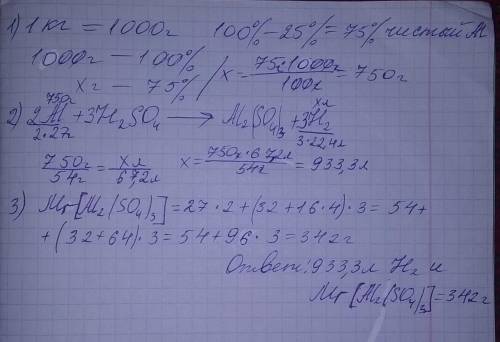 1) 1 кг = 1000г 100% - 25% = 75% чистый Al
1000г — 100%
xг — 75% / x = 75·1000г / 100% = 750г
750г xл
2) 2Al + 3H2SO4 → Al2(SO4)3 + 3H2
2·27г 3·22,4л
750г / 54г = xл / 67,2л x = 750г·67,2л / 54г = 933,3л
3) Mr[Al2(SO4)3] = 27·2 + (32 + 16·4)·3 = 54 +
+ (32 + 64)·3 = 54 + 96·3 = 342г
Ответ: 933,3л H2 и
Mr[Al2(SO4)3] = 342г